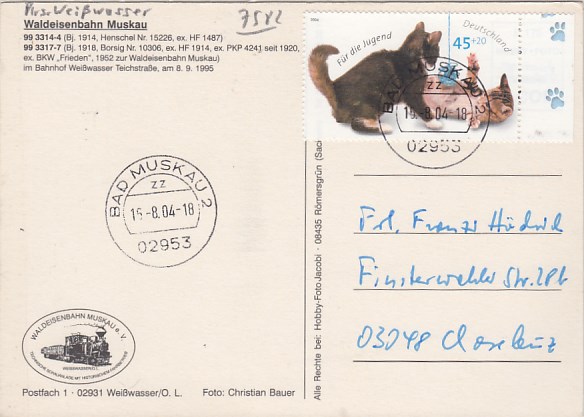 Krs. Weißwasser 7582
Waldeisenbahn Muskau
99 3314-4 (Bj. 1914, Henschel Nr. 15226, ex. HF 1487)
99 3317-7 (Bj. 1918, Borsig Nr. 10306, ex. HF 1914, ex. PKP 4241 seit 1920,
ex. BKW „Frieden", 1952 zur Waldeisenbahn Muskau)
im Bahnhof Weißwasser Teichstraße, am 8. 9. 1995
2004
Für die Jugend
45+20
Deutschland
BAD MUSKAU 2
zz
16.-8.04-18
02953
BAD MUSKAU 2
zz
16.-8.04-18
02953
Alle Rechte bei: Hobby-Foto Jacobi · 08435 Römersgrün (Sac
Frl. Franzi
Finsterwalder Str.
03048
WALDEISENBAHN MUSKAU e. V.
WEISSWASSER/O.L.
Postfach 1 · 02931 Weißwasser/O. L. Foto: Christian Bauer